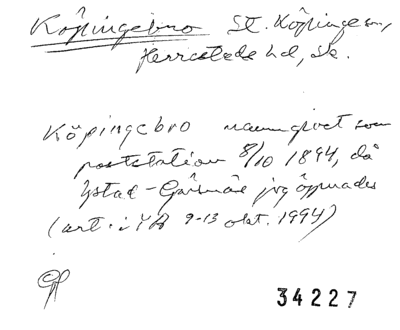 Köpingebro St. Köpinge sn,
Herrestads hd, Sk.
Köpingebro namngivet som
poststation 8/10 1894, då
Ystad - Gärsnäs jvg öppnades
(art. i YA 9-13 okt. 1994)
34227